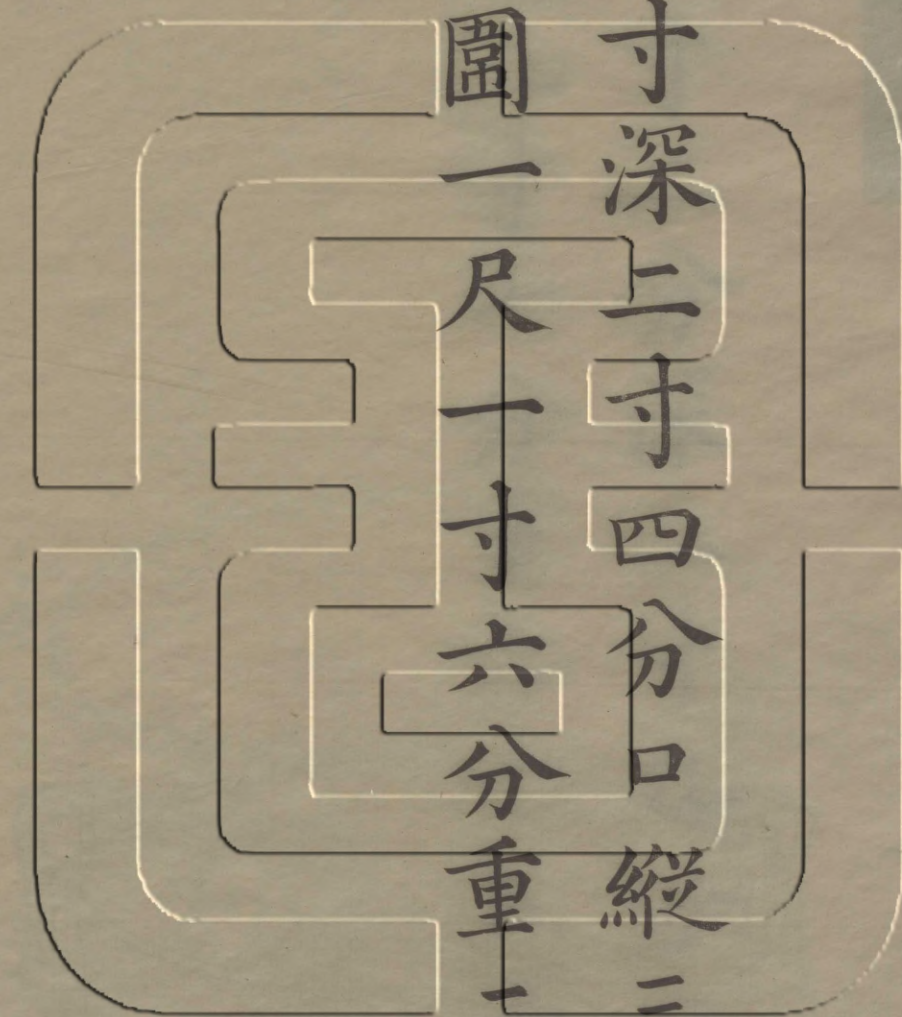 寸深二寸四分口縱二
圍一尺一寸六分重一